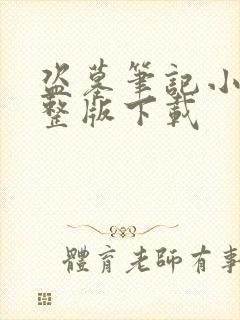 盜墓筆記小
整版下載
體育老師有事